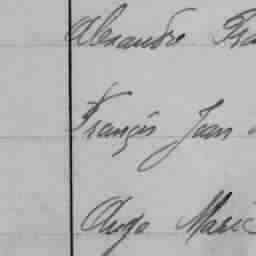 Alexandre Fra
François Jean
Ange Marie